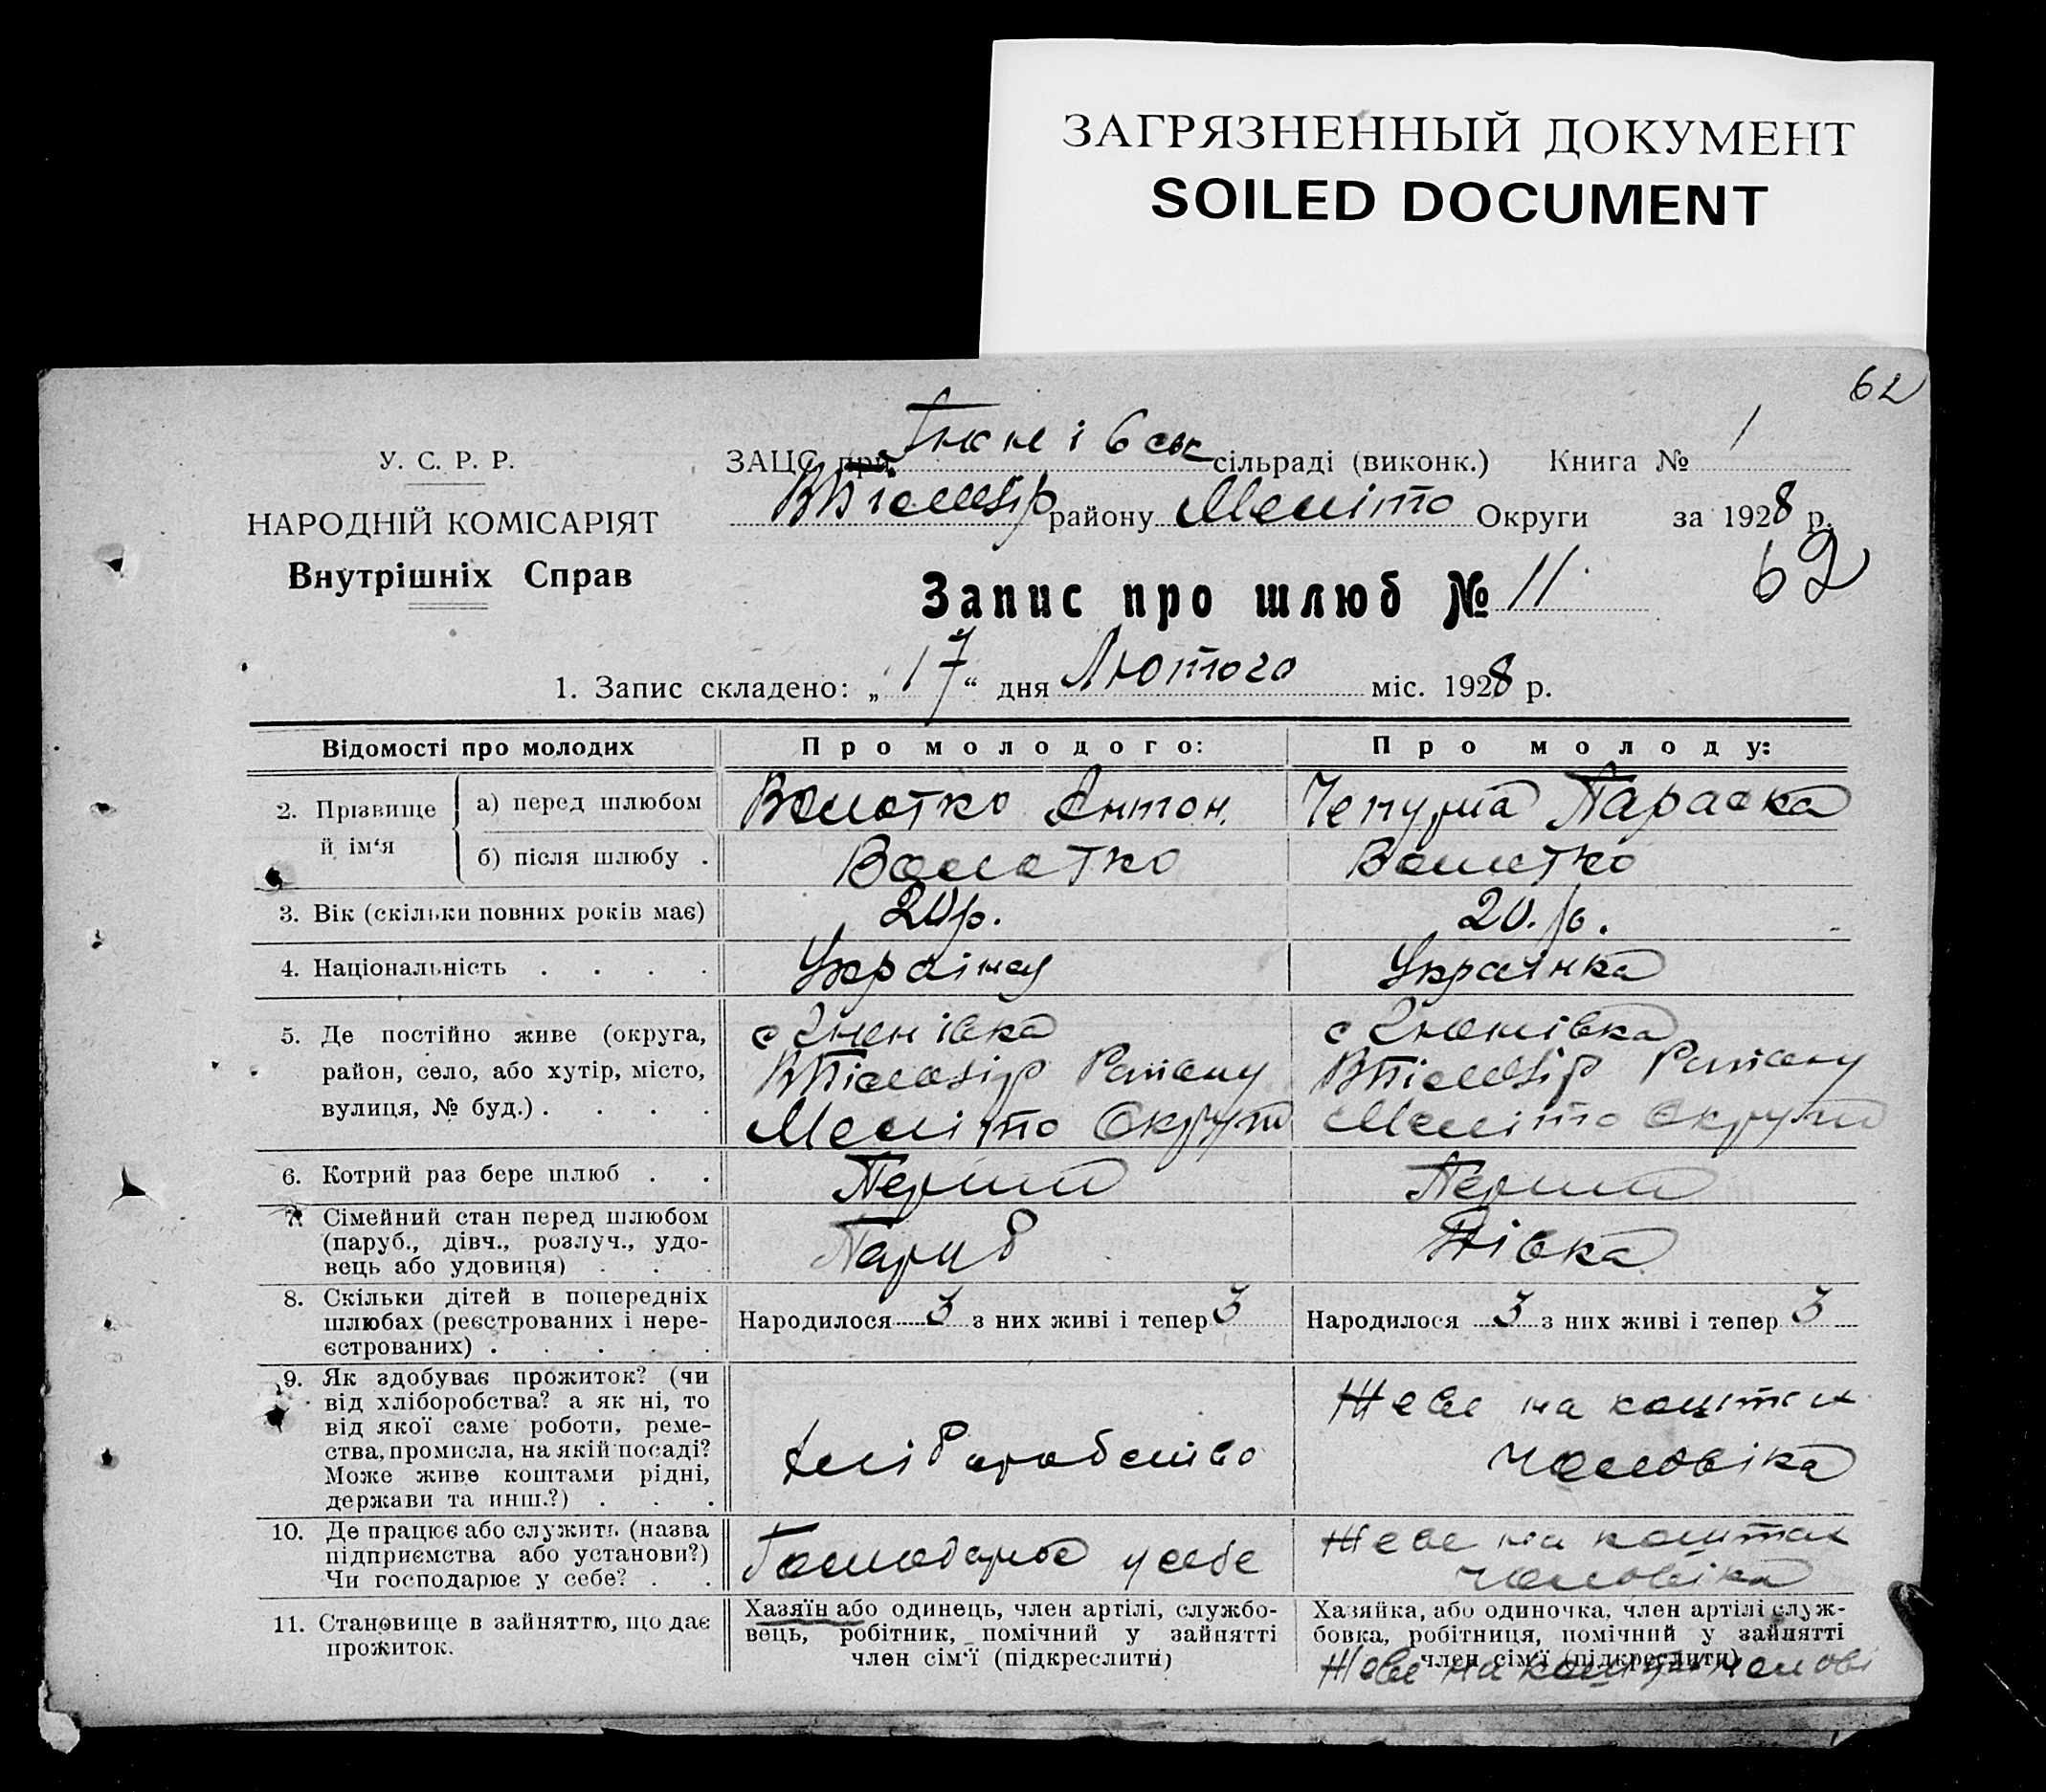 ЗАГРЯЗНЕННЫЙ ДОКУМЕНТ
SOILED DOCUMENT
62
У. С. Р. Р.
ЗАЦС при сільраді (виконк.) Книга № 1
НАРОДНІЙ КОМІСАРІЯТ
району Меліто Округи за 1928 р.
Внутрішніх Справ
Запис про шлюб № 11.
62
1. Запис складено: „17“ дня Лютого міс. 1928 р.
Відомості про молодих
Про молодого:
Про молоду:
2. Прізвище й ім‘я
а) перед шлюбом
Волотко Антон.
Чепурна Параска
б) після шлюбу .
Волотко
Волотко
3. Вік (скільки повних років має)
20 р.
20. р.
4. Національність . . . .
Українец
Українка
5. Де постійно живе (округа,
район, село, або хутір, місто,
вулиця, № буд.) . . . .
Меліто Округи
Меліто Округи
6. Котрий раз бере шлюб . .
Перший
Перша
7. Сімейний стан перед шлюбом
(паруб., дівч., розлуч., удо-
вець або удовиця) . . .
Паруб
Дівка
8. Скільки дітей в попередніх
шлюбах (реєстрованих і нере-
єстрованих) . . . . .
Народилося 3 з них живі і тепер 3
Народилося 3 з них живі і тепер 3
9. Як здобуває прожиток? (чи
від хліборобства? а як ні, то
від якої саме роботи, реме-
ства, промисла, на якій посаді?
Може живе коштами рідні,
держави та инш.?) . . .
Хліборобство
Живе на коштах
чоловіка
10. Де працює або служить (назва
підприємства або установи?)
Чи господарює у себе? . .
Господарює у себе
Живе на коштах
чоловіка
11. Становище в зайняттю, що дає
прожиток.
Хазяїн або одинець, член артілі, службо-
вець, робітник, помічний у зайнятті
член сім‘ї (підкреслити)
Хазяйка, або одиночка, член артілі служ-
бовка, робітниця, помічний у зайнятті
член сім‘ї (підкреслити)
Живе на кошти чолові